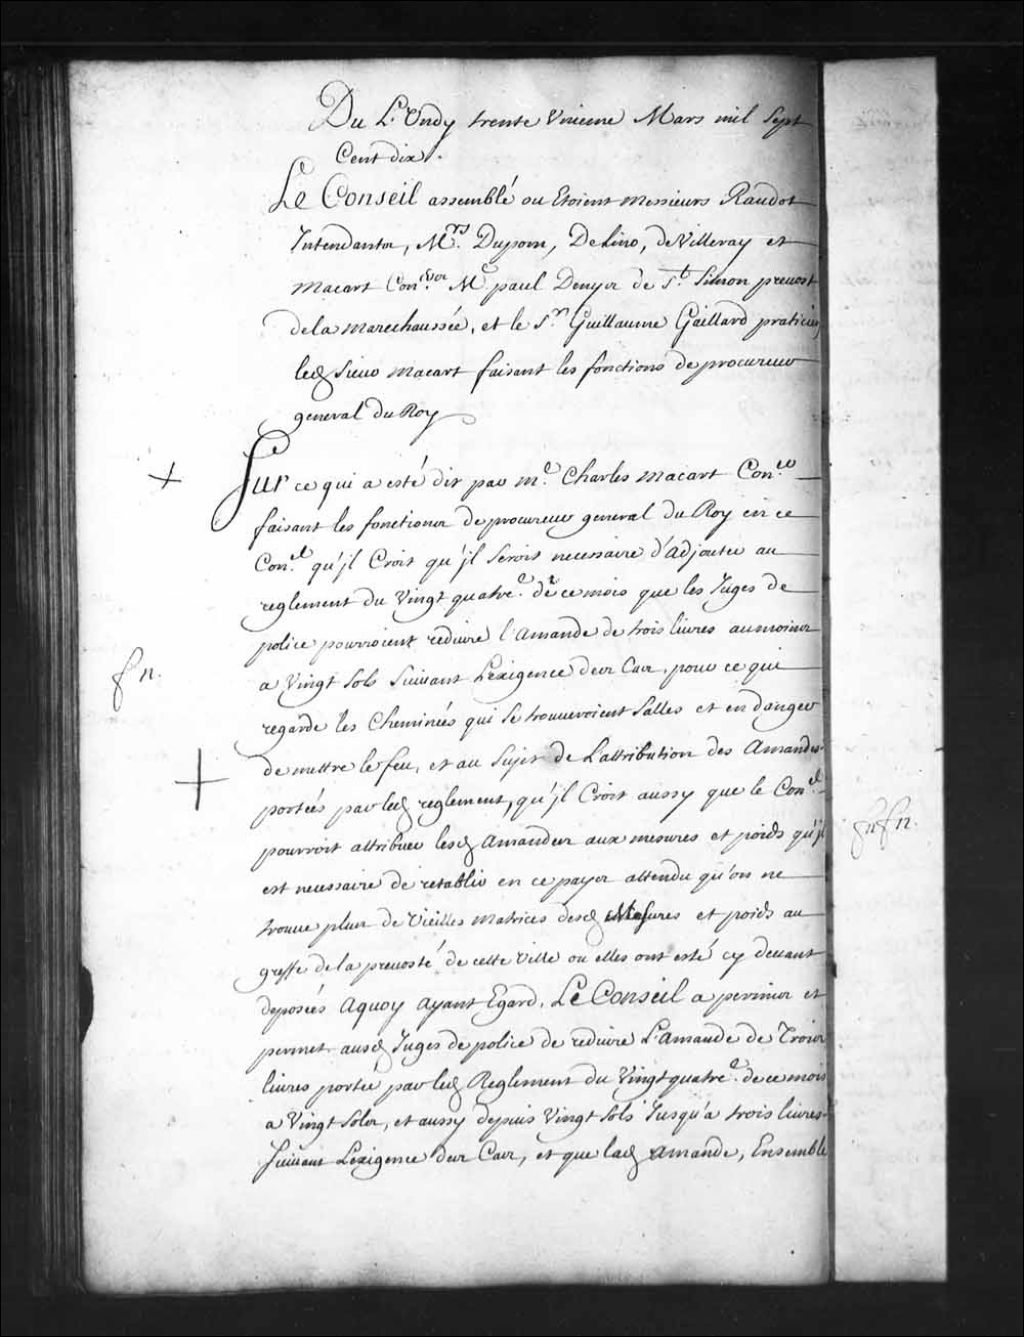 Du L'Undy trente Unieme Mars mil Sept
Cent dix.
Le Conseil assemblé ou Etoient Messieurs Raudot
Intendants, Mrs. Dupont, Delino, de Villeray et
Macart Coners. Me paul Denys de St. Simon prevost
dela Marechaussée, et le Sr. Guillaume Gaillard praticien,
led Sieur Macart faisant les fonctions de procureur
general du Roy
Sur ce qui a esté dit par me. Charles Macart Coner
faisant les fonctions de procureur general du Roy en ce
Conel. qu'jl Croit qu'jl Seroit necessaire d'adjouter au
reglement du Vingt quatre. de ce mois que les Juges de
police pourroient reduire l'amande de trois livres aumoins
a Vingt Sols Suivant L'exigence des Cas, pour ce qui
regarde les Cheminées qui Se trouveroient Salles et en danger
de mettre le feu, et au Sujet de L'attribution des Amandes
portées par led reglement, qu'jl Croit aussy que le Conel.
pourroit attribuer lesd Amandes aux mesures et poids qu'jl
est necessaire de retablir en ce payes attendu qu'on ne
trouve plus de Vieilles Matrices desd Mesures et poids au
greffe dela prevosté de cette Ville ou elles ont esté cy devant
deposées aquoy ayant Egard. Le Conseil a permis et
permet ausd Juges de police de reduire L'amande de Trois
livres portée par led Reglement du Vingt quatre. de ce mois
a Vingt Sols, et aussy depuis Vingt Sols Jusqu'a trois livres
Suivant L'exigence des Cas, et que lad amande, Ensemble